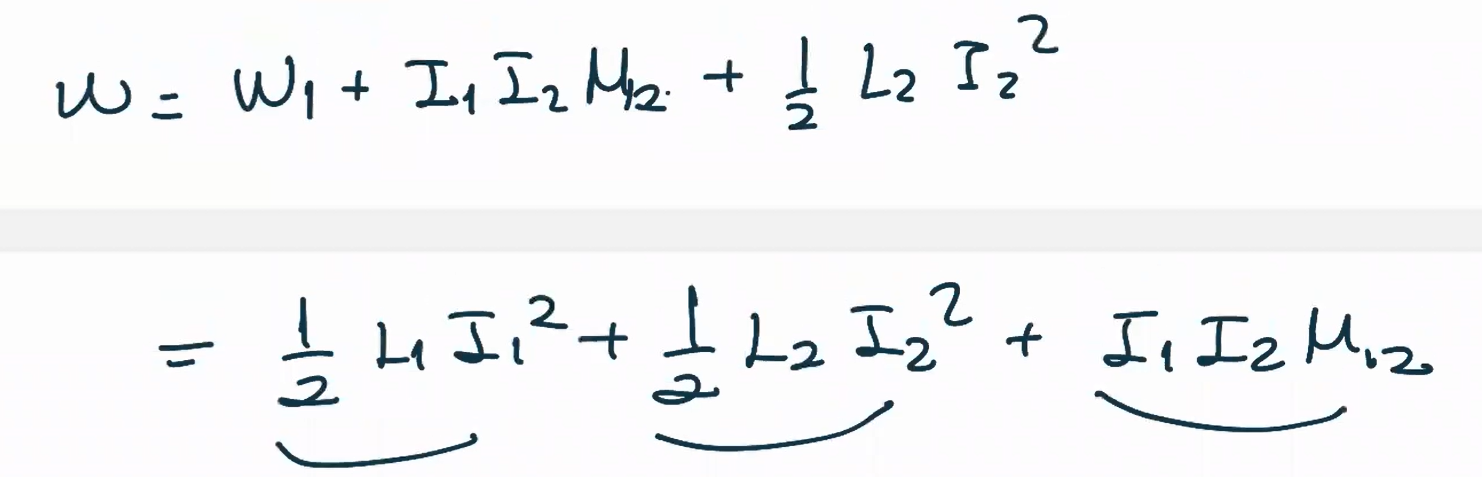 W = W₁ + I₁ I₂ M₁₂ + 1/2 L₂ I₂²
= 1/2 L₁ I₁² + 1/2 L₂ I₂² + I₁ I₂ M₁₂